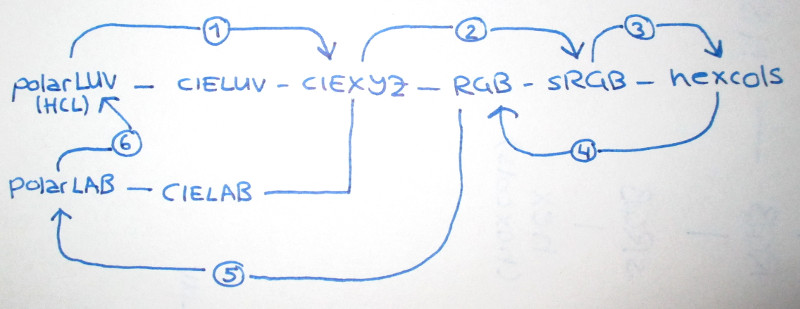 1 2 3
polarLUV — CIELUV — CIEXYZ — RGB - sRGB — hexcols
(HCL)
6 4
polarLAB — CIELAB
5